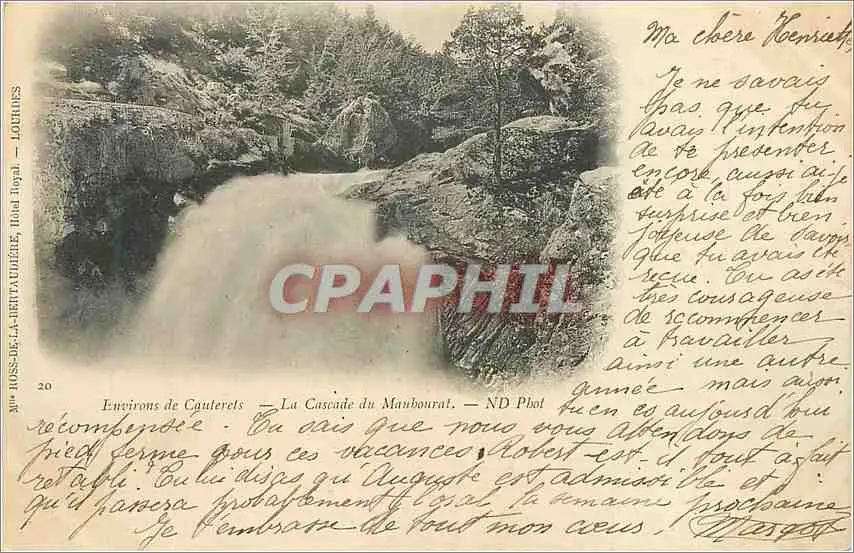 Ma chère Henriette,
Je ne savais
pas que tu
avais l'intention
de te présenter
encore, aussi ai-je
été à la fois bien
surprise et bien
joyeuse de savoir
que tu avais été
reçue. Tu as été
très courageuse
de recommencer
à travailler
ainsi une autre
année mais aussi
tu en es aujourd'hui
récompensée. Tu sais que nous vous attendons de
pied ferme pour ces vacances. Robert est-il tout à fait
rétabli? Tu lui diras qu'Auguste est admissible et
qu'il passera probablement l'oral la semaine prochaine
Je t'embrasse de tout mon cœur. Margot
Mlle ROSS-DE-LA-BERTAUDIÈRE, Hôtel Royal. — LOURDES
CPAPHIL
20
Environs de Cauterets — La Cascade du Mauhourat. — ND Phot